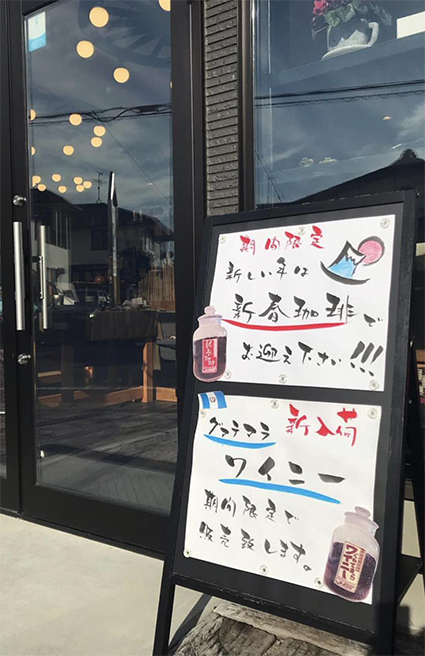 期間限定
新しい年は
新春珈琲で
お迎え下さい!!!
新入荷
グァテマラ
ワイニー
期間限定で
販売致します。
ワイニー